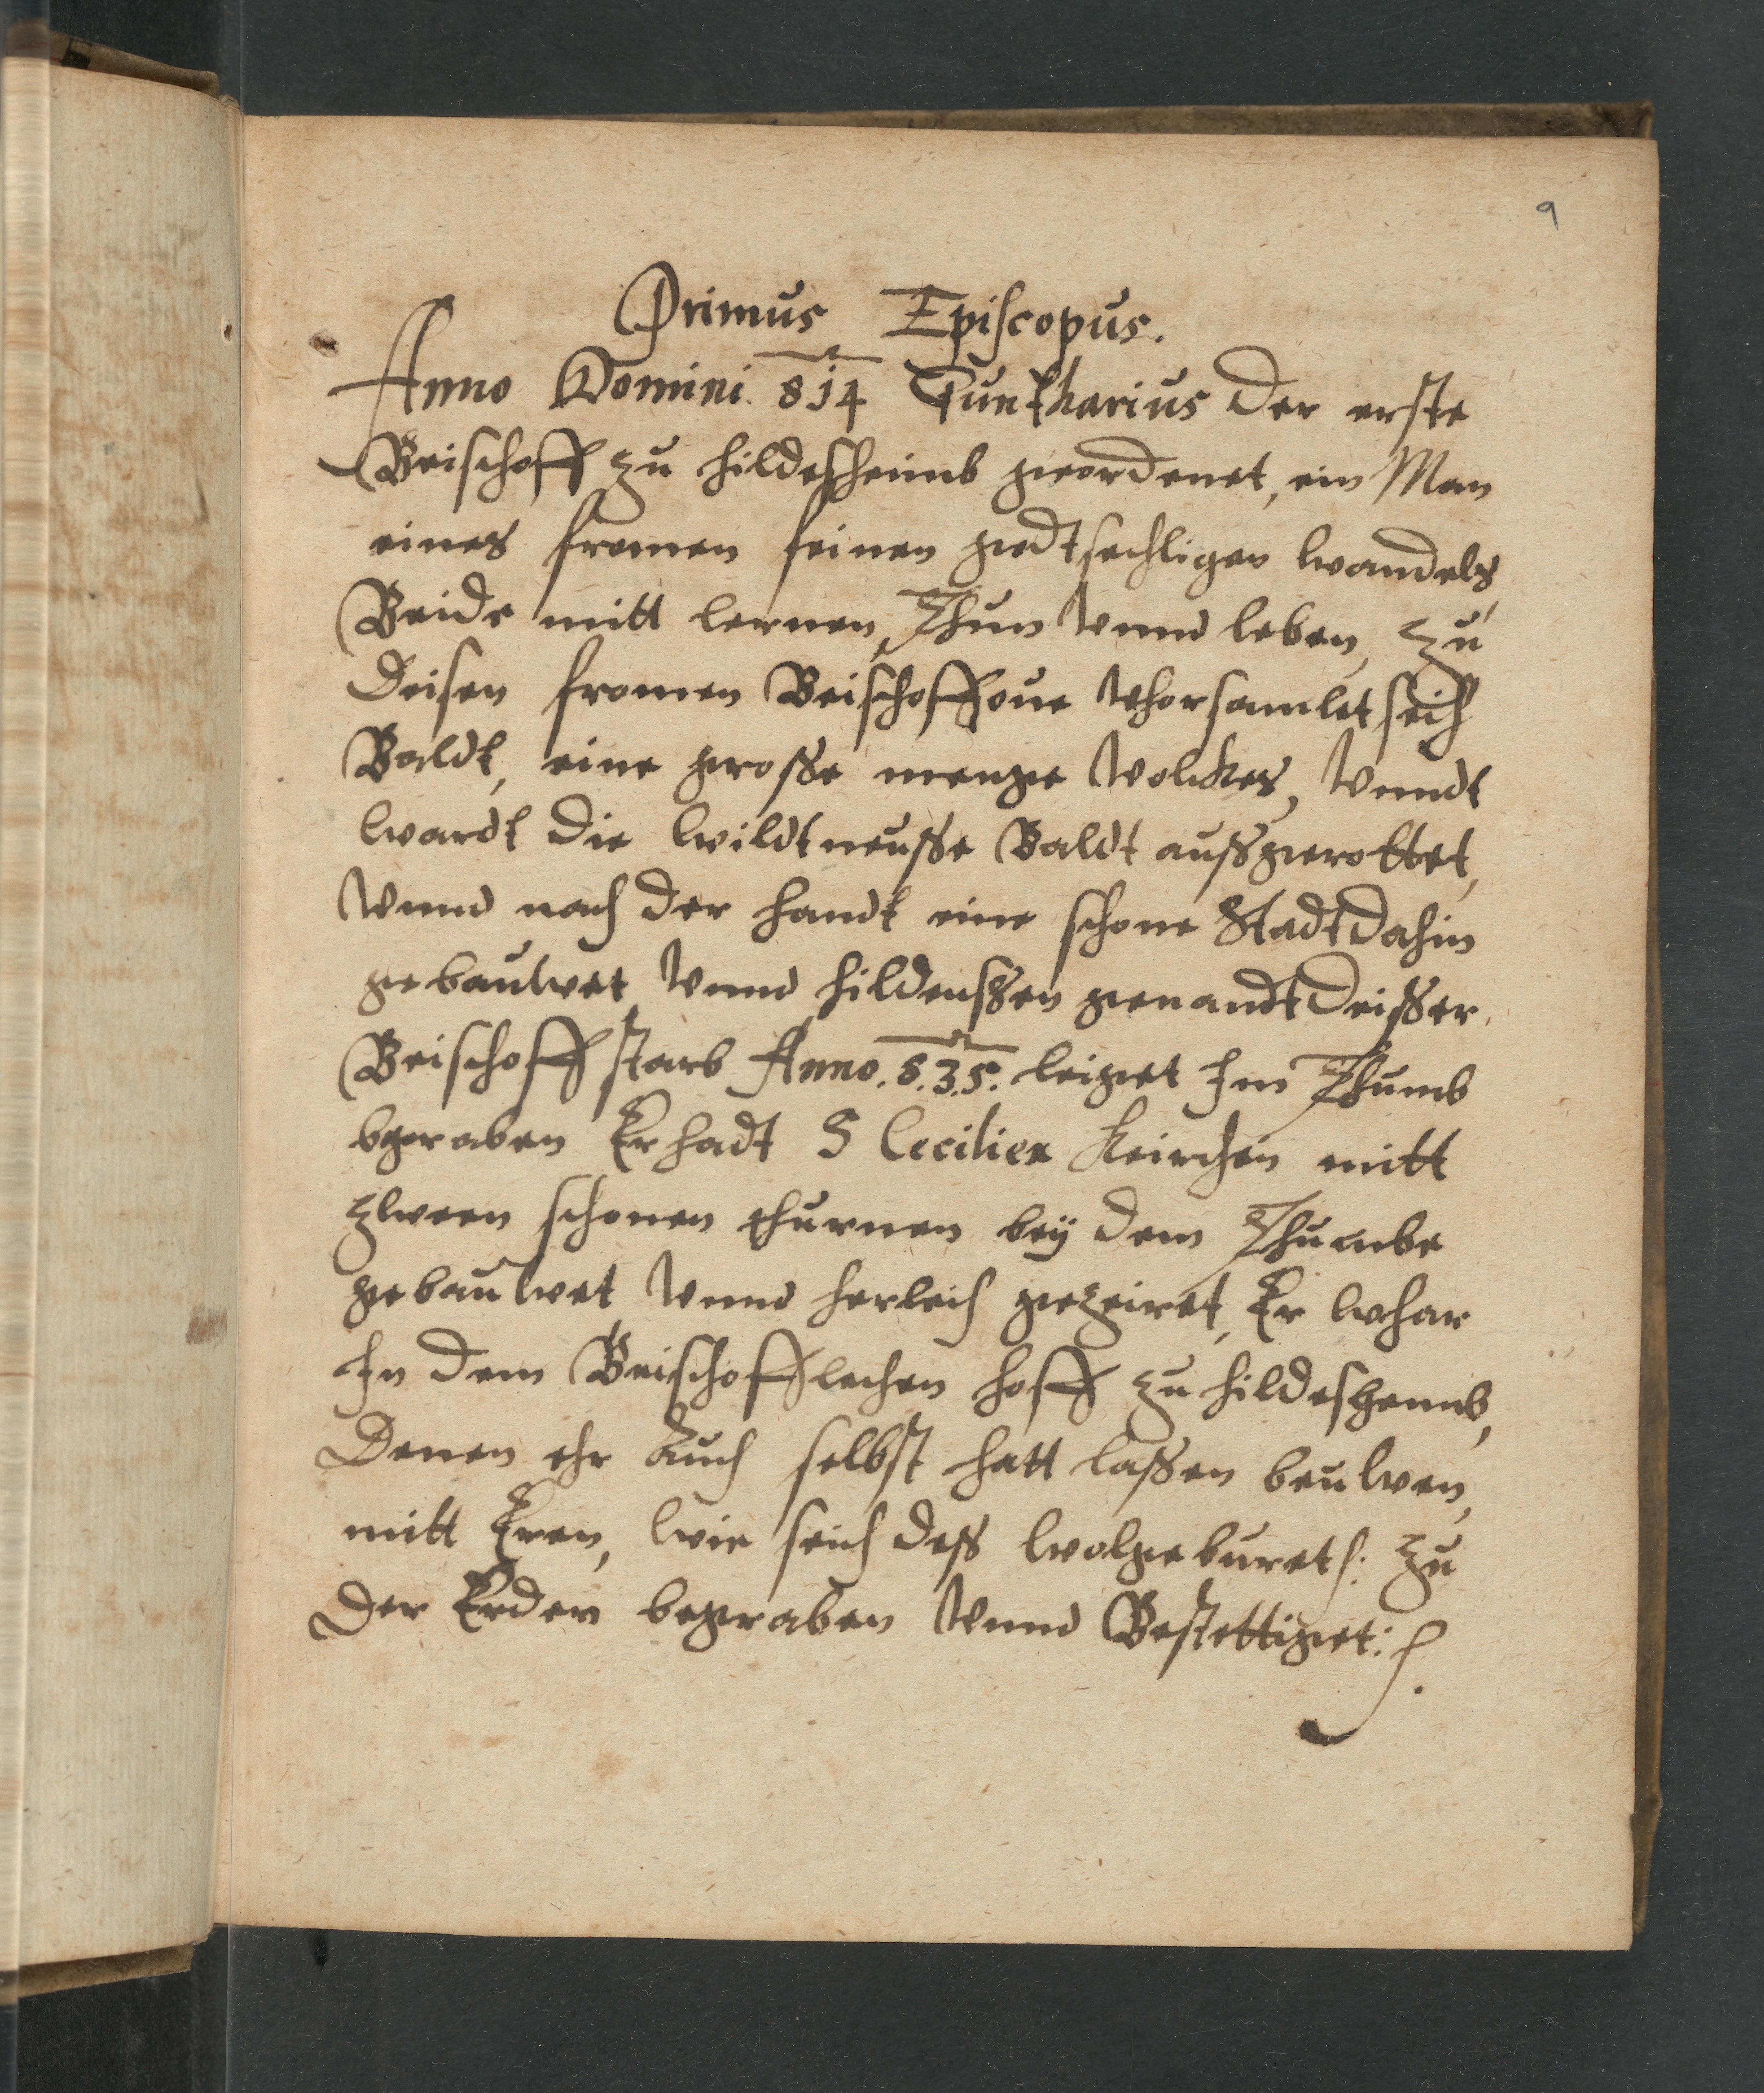 9
Primus Episcopus.
Anno Domini 814 Guntharius der erste
Beischoff zu hildesheimb geordenet, ein Man
eines fromen feinen godtsehligen wandels
Beide mitt lernen, Thun vnnd leben, zu
deisen fromen Beischoffe vorsamlet seich
Baldt, eine grosse menge volckes, vnndt
wardt die wildtneusse Baldt aussgerottet,
vnnd nach der handt eine schone Stadt dahin
gebauwet vnnd hildenssen genandt deisser
Beischoff starb Anno. 8.35. leiget Im Thumb
bgraben Er hadt S Cecilien Keirchen mitt
zween schonen thurnen beÿ dem Thumbe
gebauwet vnnd herleich gezeiret, Er whar
In dem Beischofflechen hoff zu hildeshemb,
Denen ehr auch selbst hatt lassen beuwen,
mitt Eren, wie seich dess wolgeburet: zu
der Erden begraben vnnd Bestettiget: